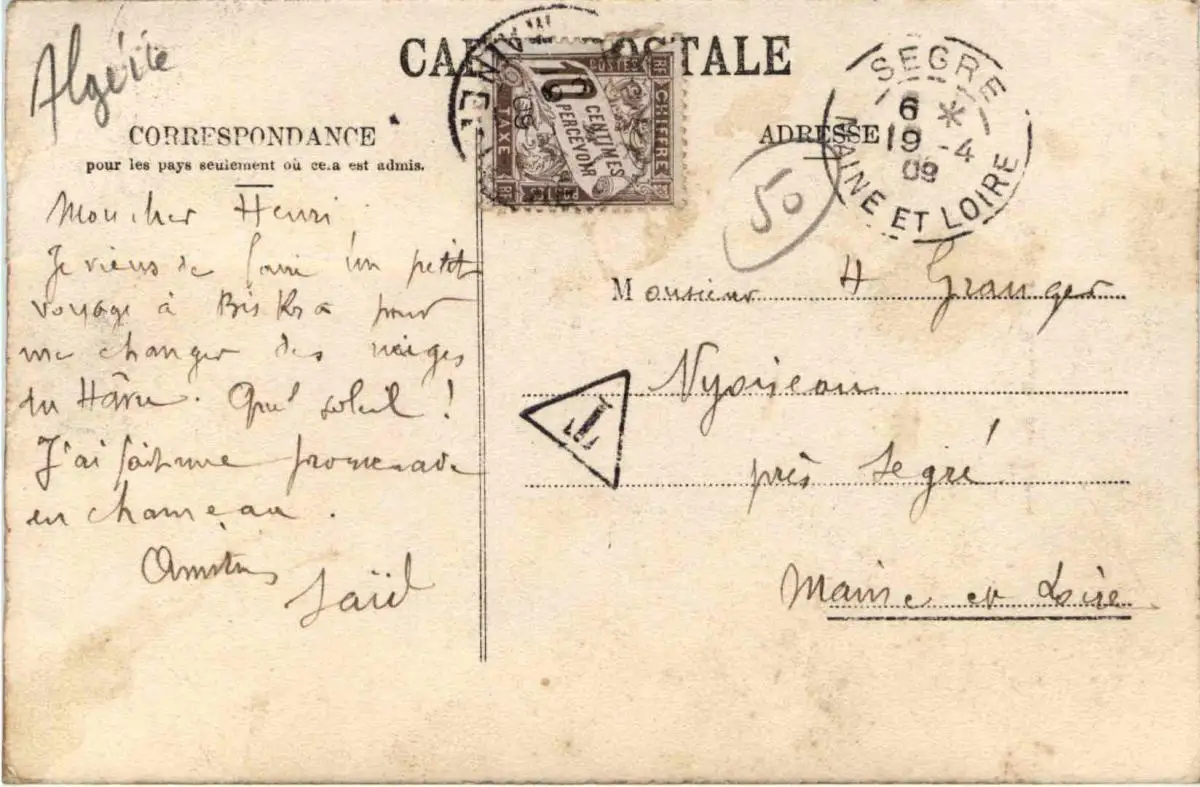 Algérie
CARTE POSTALE
CORRESPONDANCE
pour les pays seulement où cela est admis.
Mon cher Henri
Je viens de faire un petit
voyage à Biskra pour
me changer des neiges
du
Quel soleil !
J'ai fait une promenade
en chameau.
Amitiés
Saïd
POSTES
RF
10
CENTIMES
A
PERCEVOIR
CHIFFRE
TAXE
RF
09
ADRESSE
SEGRÉ
6 *
19 -4
09
MAINE ET LOIRE
50
Monsieur H Granger
Nyoiseau
T
près Segré
Maine et Loire